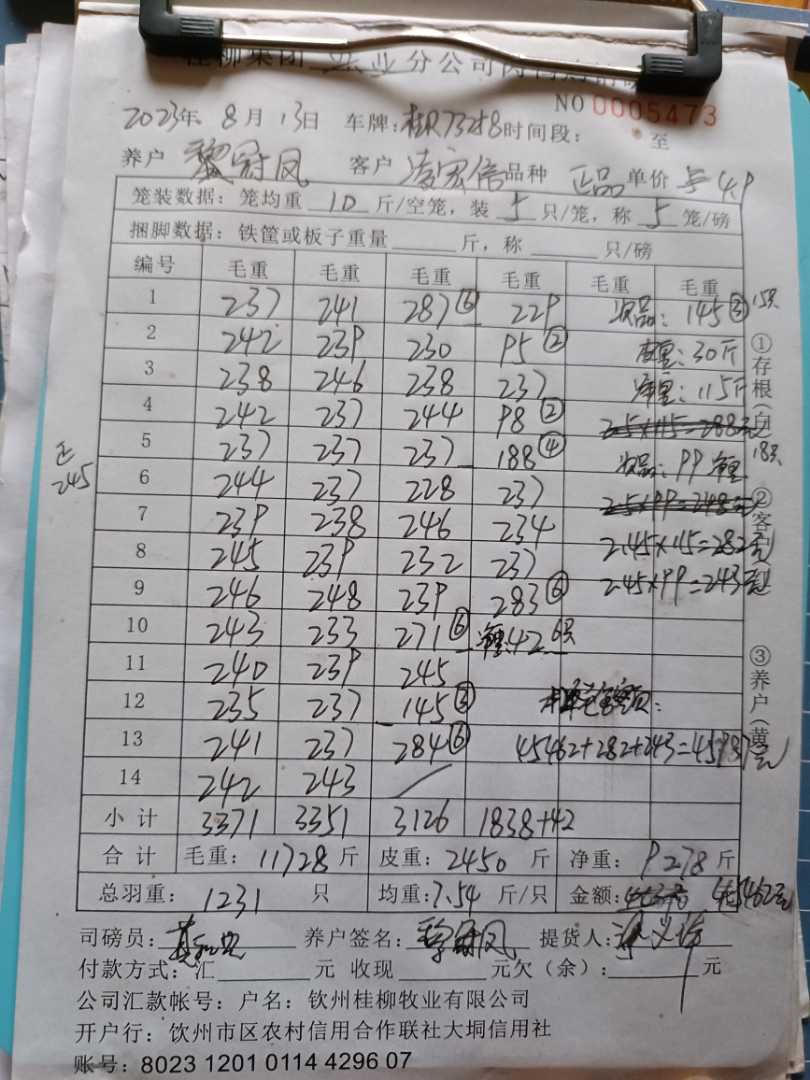 桂柳集团 分公司
NO 0005473
2023年 8月 13日 车牌:桂R73258 时间段: 至
养户 黎冠凤 客户 凌宏信 品种 正品 单价 4.9
笼装数据:笼均重 10 斤/空笼,装 5 只/笼,称 5 笼/磅
捆脚数据:铁筐或板子重量 斤,称 只/磅
编号 毛重 毛重 毛重 毛重 毛重 毛重
1 237 241 287⑥ 229 次品:145③ 15只
2 242 239 230 95② 皮重:30斤
3 238 246 238 237 净重:115斤
4 242 237 244 98② 2.5×115=288元
5 237 237 237 188④ 次品:99 净重 18只
正245
6 244 237 228 237 2.5×99=248元
7 239 238 246 234 2.45×115=282元
8 245 239 232 237 2.45×99=243元
9 246 248 239 283⑥
10 243 233 271⑥ 净重:42 6只
11 240 239 245
12 235 237 145③
13 241 237 284⑥ 45462+282+243=45987元
14 242 243 /
小计 3371 3351 3126 1838+42
合计 毛重:11728斤 皮重:2450斤 净重:9278斤
总羽重:1231只 均重:7.54斤/只 金额:45462元
①存根(白
②客
③养户(黄
司磅员: 养户签名:黎冠凤 提货人:
付款方式:汇 元 收现 元欠(余): 元
公司汇款帐号:户名:钦州桂柳牧业有限公司
开户行:钦州市区农村信用合作联社大垌信用社
账号:8023 1201 0114 4296 07